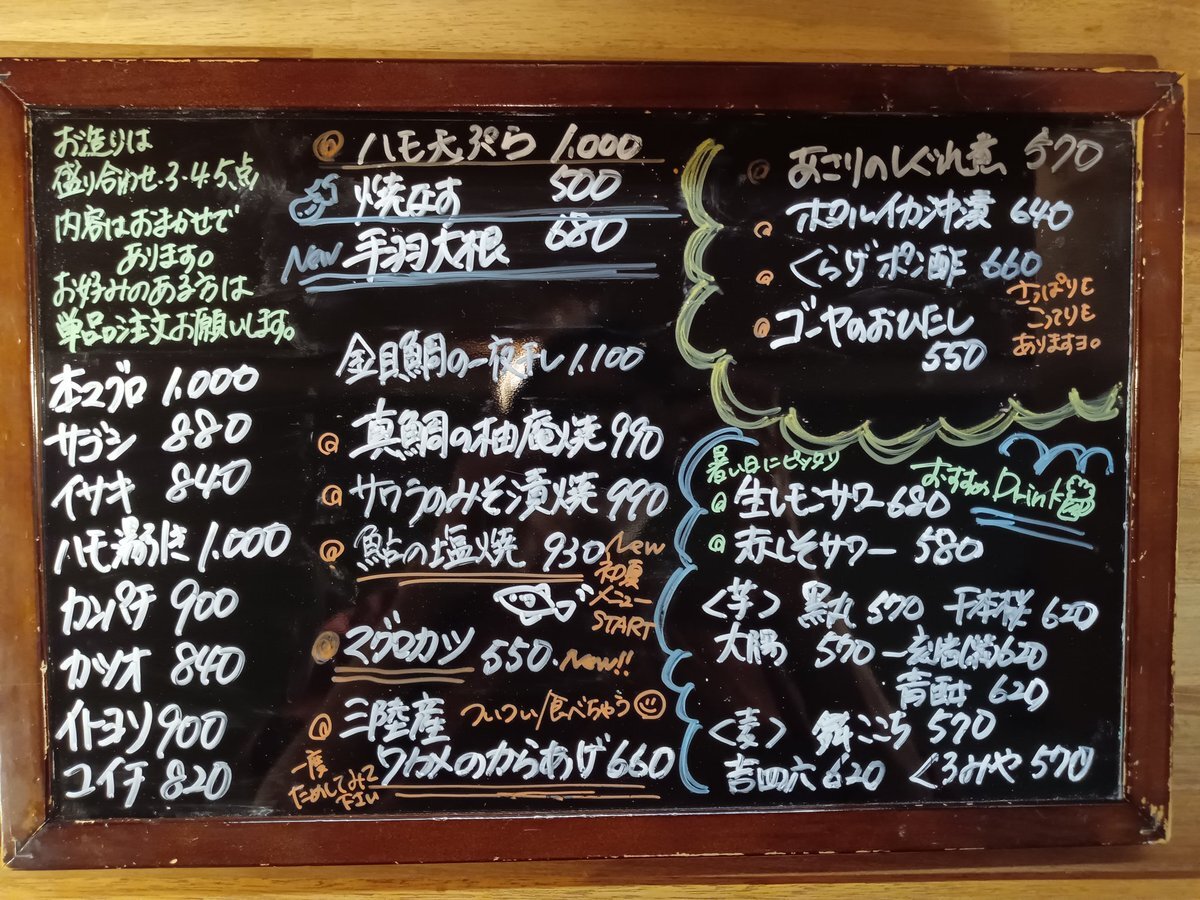 お造りは
盛り合わせ・3・4・5点
内容はおまかせで
あります。
お好みのある方は
単品の注文お願いします。
本マグロ 1.000
サゴシ 880
イサキ 840
ハモ湯引き 1.000
カンパチ 900
カツオ 840
イトヨリ 900
コイチ 820
ハモ天ぷら 1.000
焼なす 500
New 手羽大根 680
金目鯛の一夜干し 1.100
真鯛の柚庵焼 990
サワラのみそ漬焼 990
鮎の塩焼 930
New
初夏
メニュー
START
マグロカツ 550. New!!
三陸産 ついつい食べちゃう
ワカメのからあげ 660
一度
ためしてみて
下さい
あさりのしぐれ煮 570
ホタルイカ沖漬 640
くらげポン酢 660
ゴーヤのおひたし
550
さっぱりも
こってりも
ありますヨ。
暑い日にピッタリ
おすすめ Drink
生レモンサワー 680
赤しそサワー 580
<芋> 黒丸 570 千本桜 620
大隅 570 一刻者 620
620
<麦> 舞ここち 570
吉四六 620 くろみや 570